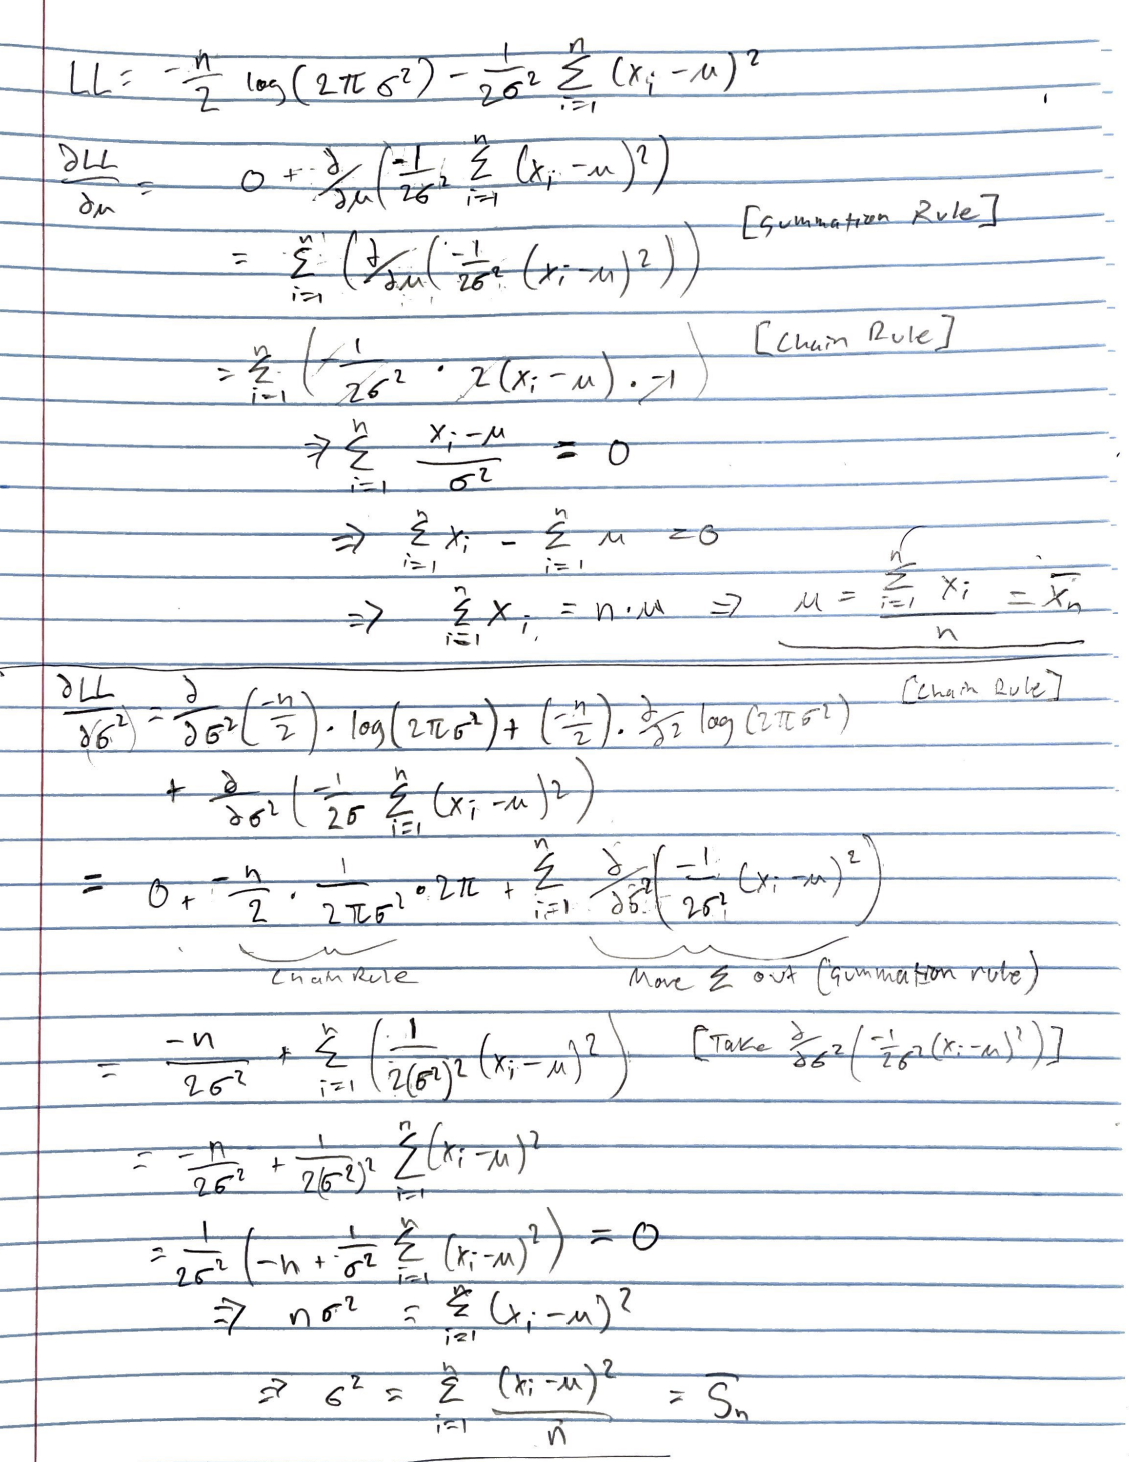 LL = -n/2 log(2πσ²) - 1/2σ² Σ_{i=1}^{n} (x_i - μ)²
∂LL/∂μ = 0 + ∂/∂μ(-1/2σ² Σ_{i=1}^{n} (x_i - μ)²)
= Σ_{i=1}^{n} (∂/∂μ(-1/2σ² (x_i - μ)²)) [Summation Rule]
= Σ_{i=1}^{n} (-1/2σ² · 2(x_i - μ) · -1) [Chain Rule]
⇒ Σ_{i=1}^{n} (x_i - μ)/σ² = 0
⇒ Σ_{i=1}^{n} x_i - Σ_{i=1}^{n} μ = 0
⇒ Σ_{i=1}^{n} x_i = n·μ ⇒ μ = Σ_{i=1}^{n} x_i / n = x̄_n
∂LL/∂(σ²) = ∂/∂σ²(-n/2) · log(2πσ²) + (-n/2) · ∂/∂² log(2πσ²) [Chain Rule]
+ ∂/∂σ² (-1/2σ Σ_{i=1}^{n} (x_i - μ)²)
= 0 + -n/2 · 1/2πσ² · 2π + Σ_{i=1}^{n} ∂/∂σ²(-1/2σ² (x_i - μ)²)
Chain Rule Move Σ out (Summation rule)
= -n/2σ² + Σ_{i=1}^{n} (1/2(σ²)² (x_i - μ)²) [Take ∂/∂σ²(-1/2σ² (x_i - μ)²)]
= -n/2σ² + 1/2(σ²)² Σ_{i=1}^{n} (x_i - μ)²
= 1/2σ² (-n + 1/σ² Σ_{i=1}^{n} (x_i - μ)²) = 0
⇒ nσ² = Σ_{i=1}^{n} (x_i - μ)²
⇒ σ² = Σ_{i=1}^{n} (x_i - μ)²/n = S̄_n